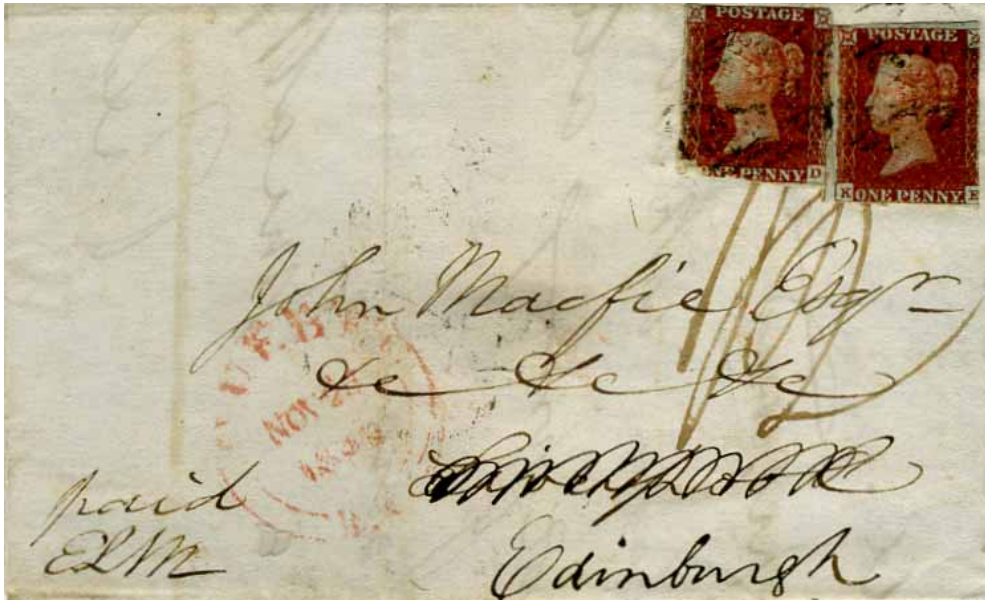 POSTAGE
ONE PENNY D
POSTAGE
K ONE PENNY. E
John Macfie Esqr
&c &c &c
Edinburgh
paid
ELM
QUEBEC
NOV